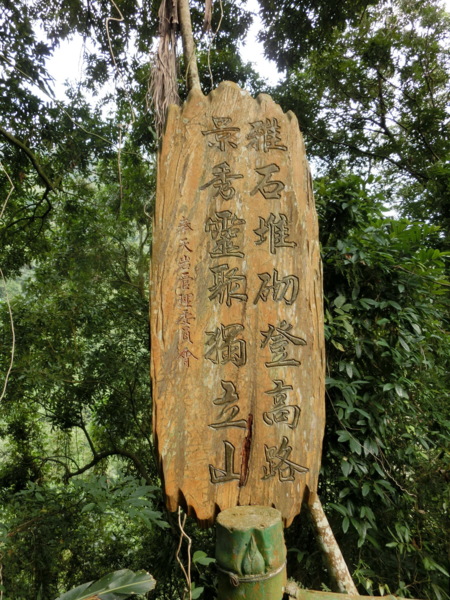 雅石堆砌登高路
景秀靈聚獨立山
奉天岩管理委員會